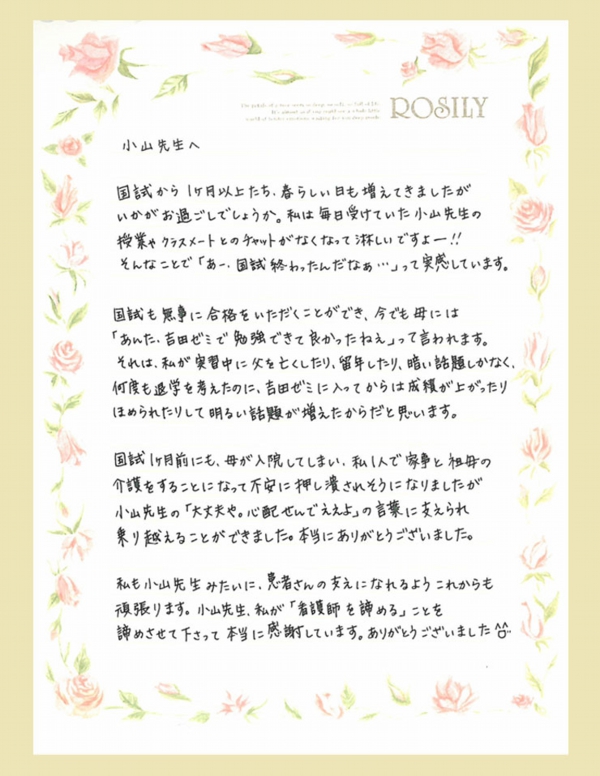 ROSILY
小山先生へ
国試から1ヶ月以上たち、春らしい日も増えてきましたが
いかがお過ごしでしょうか。私は毎日受けていた小山先生の
授業やクラスメートとのチャットがなくなって淋しいですよー!!
そんなことで「あー、国試終わったんだなぁ…」って実感しています。
国試も無事に合格をいただくことができ、今でも母には
「あんた、吉田ゼミで勉強できて良かったねえ」って言われます。
それは、私が実習中に父を亡くしたり、留年したり、暗い話題しかなく、
何度も退学を考えたのに、吉田ゼミに入ってからは成績が上がったり
ほめられたりして明るい話題が増えたからだと思います。
国試1ヶ月前にも、母が入院してしまい、私1人で家事と祖母の
介護をすることになって不安に押し潰されそうになりましたが
小山先生の「大丈夫や。心配せんでええよ」の言葉に支えられ
乗り越えることができました。本当にありがとうございました。
私も小山先生みたいに、患者さんの支えになれるようこれからも
頑張ります。小山先生、私が「看護師を諦める」ことを
諦めさせて下さって本当に感謝しています。ありがとうございました